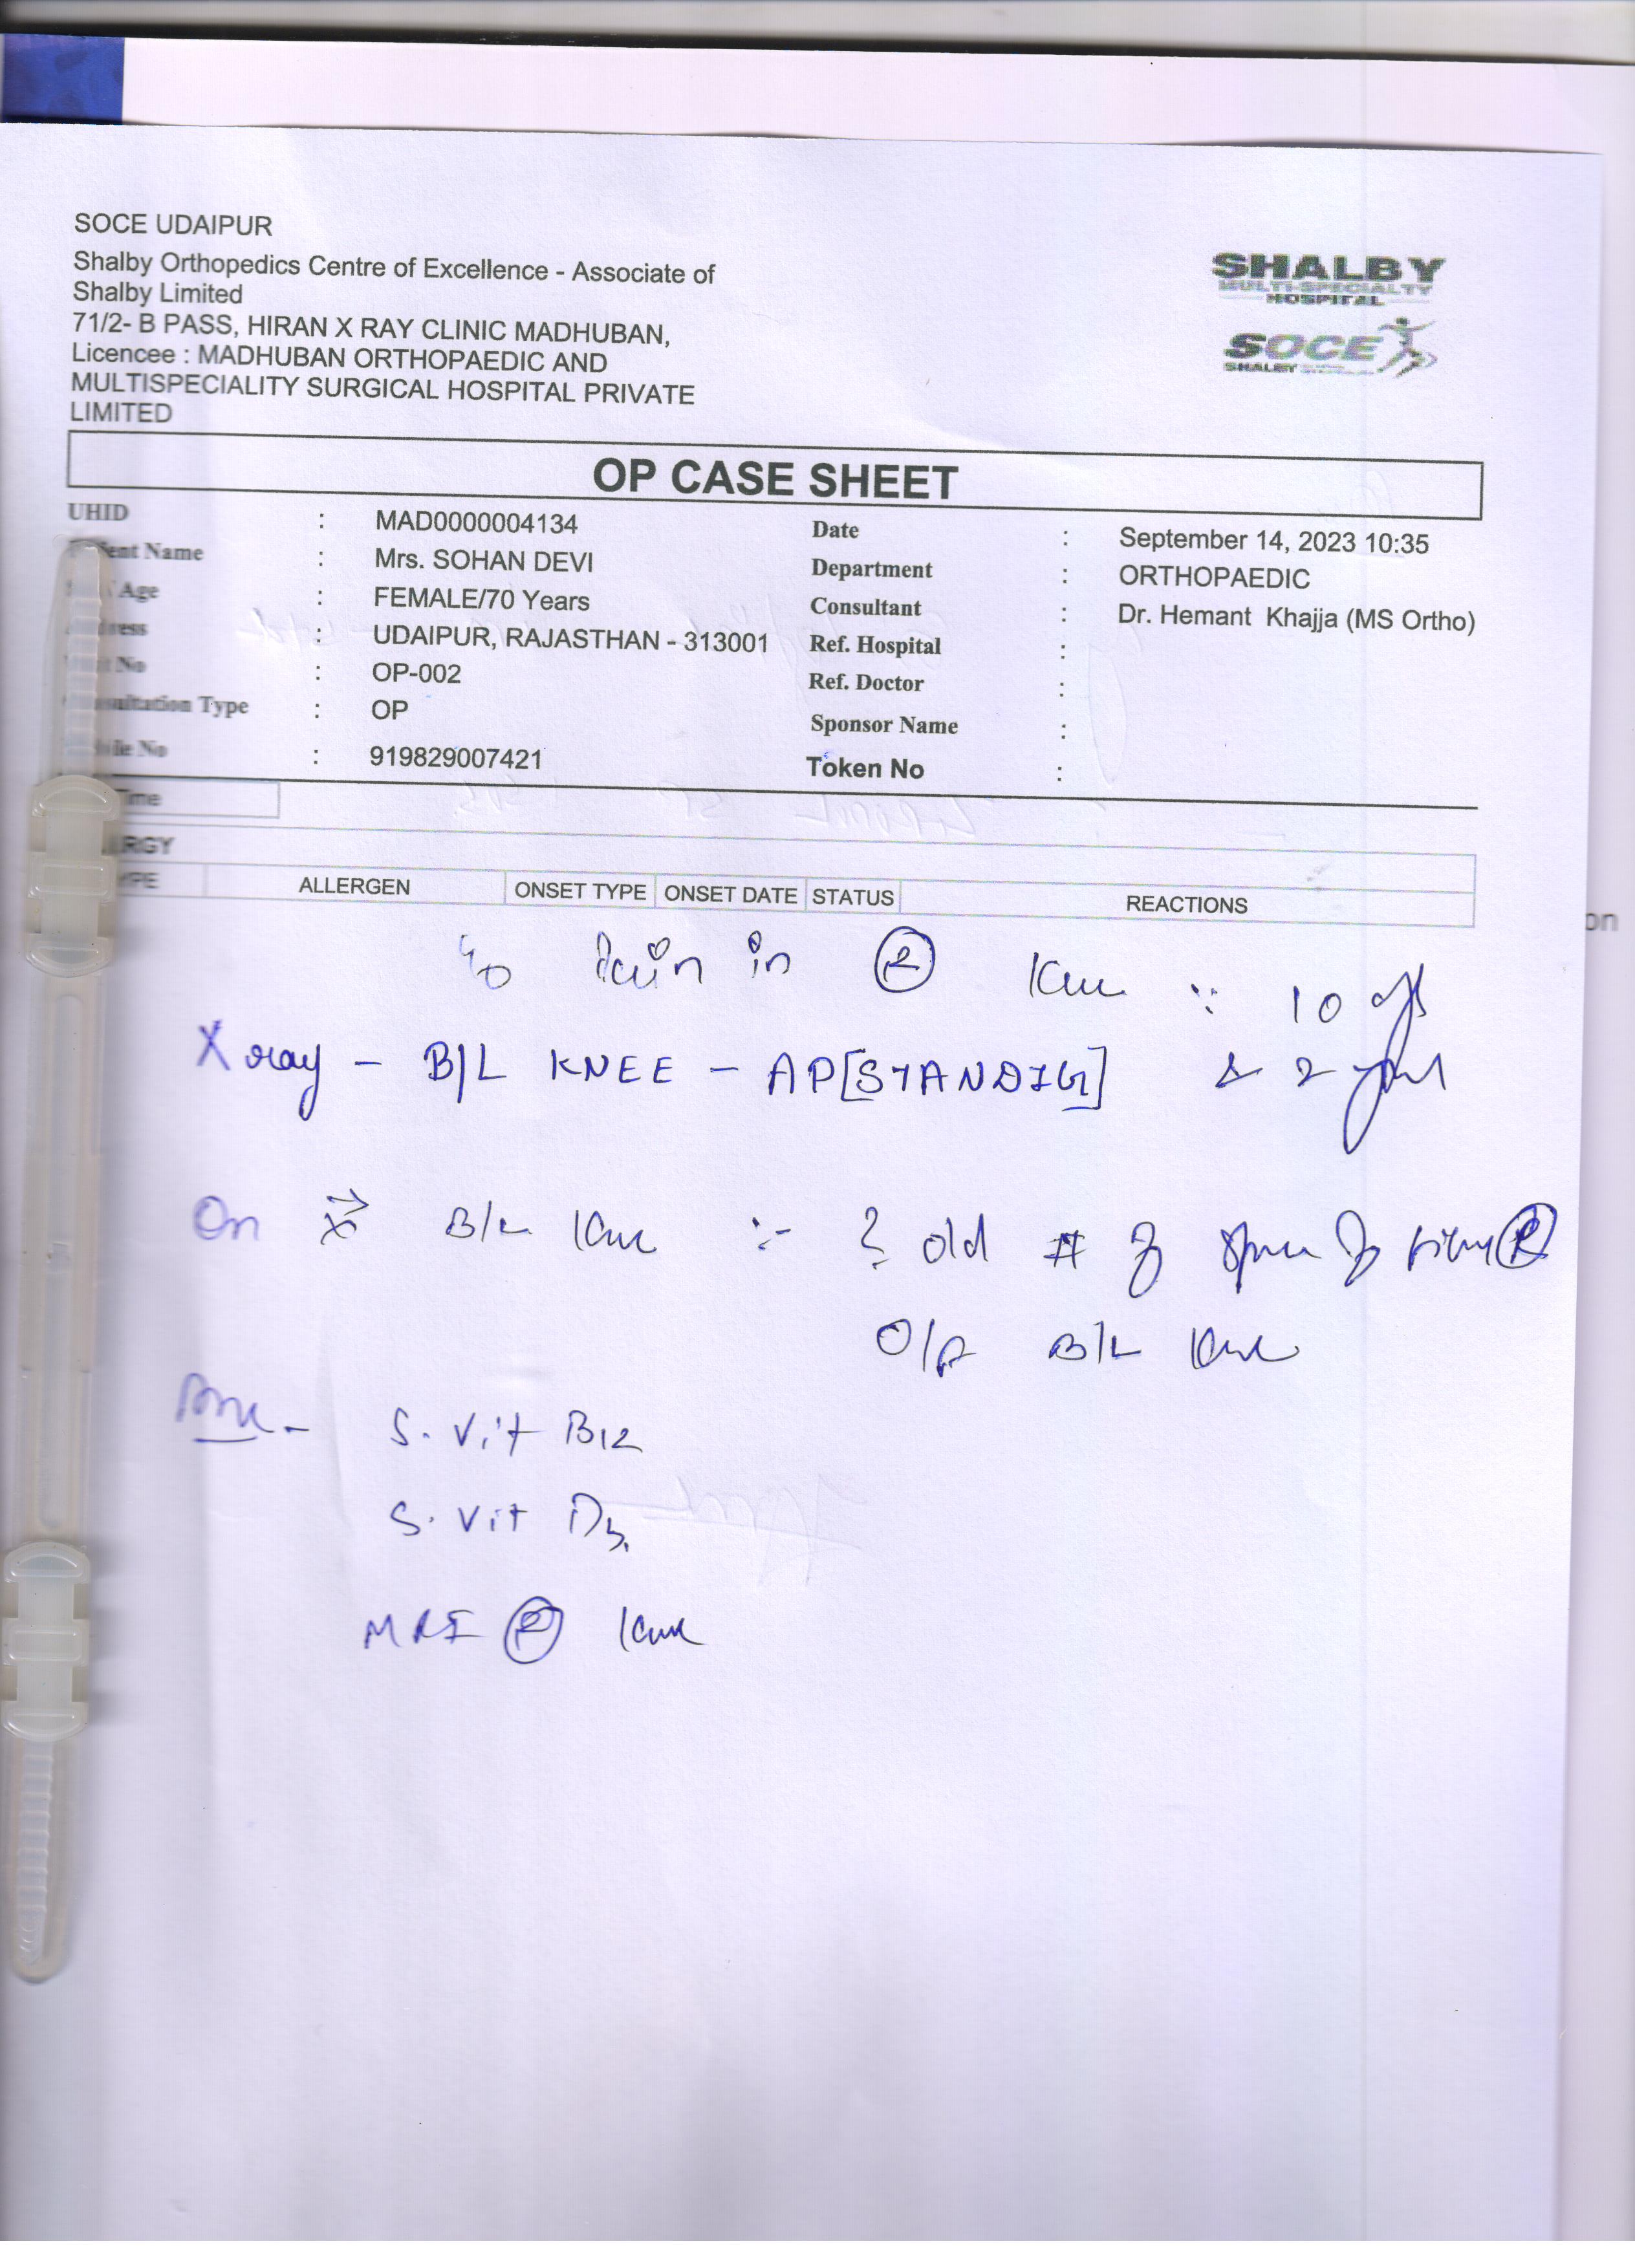 SOCE UDAIPUR
Shalby Orthopedics Centre of Excellence - Associate of
Shalby Limited
71/2- B PASS, HIRAN X RAY CLINIC MADHUBAN,
Licencee : MADHUBAN ORTHOPAEDIC AND
MULTISPECIALITY SURGICAL HOSPITAL PRIVATE
LIMITED
SHALBY
MULTI-SPECIALTY
HOSPITAL
SOCE
SHALBY
OP CASE SHEET
UHID : MAD0000004134 Date : September 14, 2023 10:35
ent Name : Mrs. SOHAN DEVI Department : ORTHOPAEDIC
Age : FEMALE/70 Years Consultant : Dr. Hemant Khajja (MS Ortho)
ress : UDAIPUR, RAJASTHAN - 313001 Ref. Hospital :
No : OP-002 Ref. Doctor :
sultation Type : OP Sponsor Name :
ile No : 919829007421 Token No :
Time
RGY
YPE ALLERGEN ONSET TYPE ONSET DATE STATUS REACTIONS
on
c/o Pain in (R) Knee 10
X ray - B/L KNEE - AP[STANDIG] 2
On B/L Knee :- ? old # of of (R)
O/A B/L Knee
S. Vit B12
S. Vit D3
MRI (R) Knee